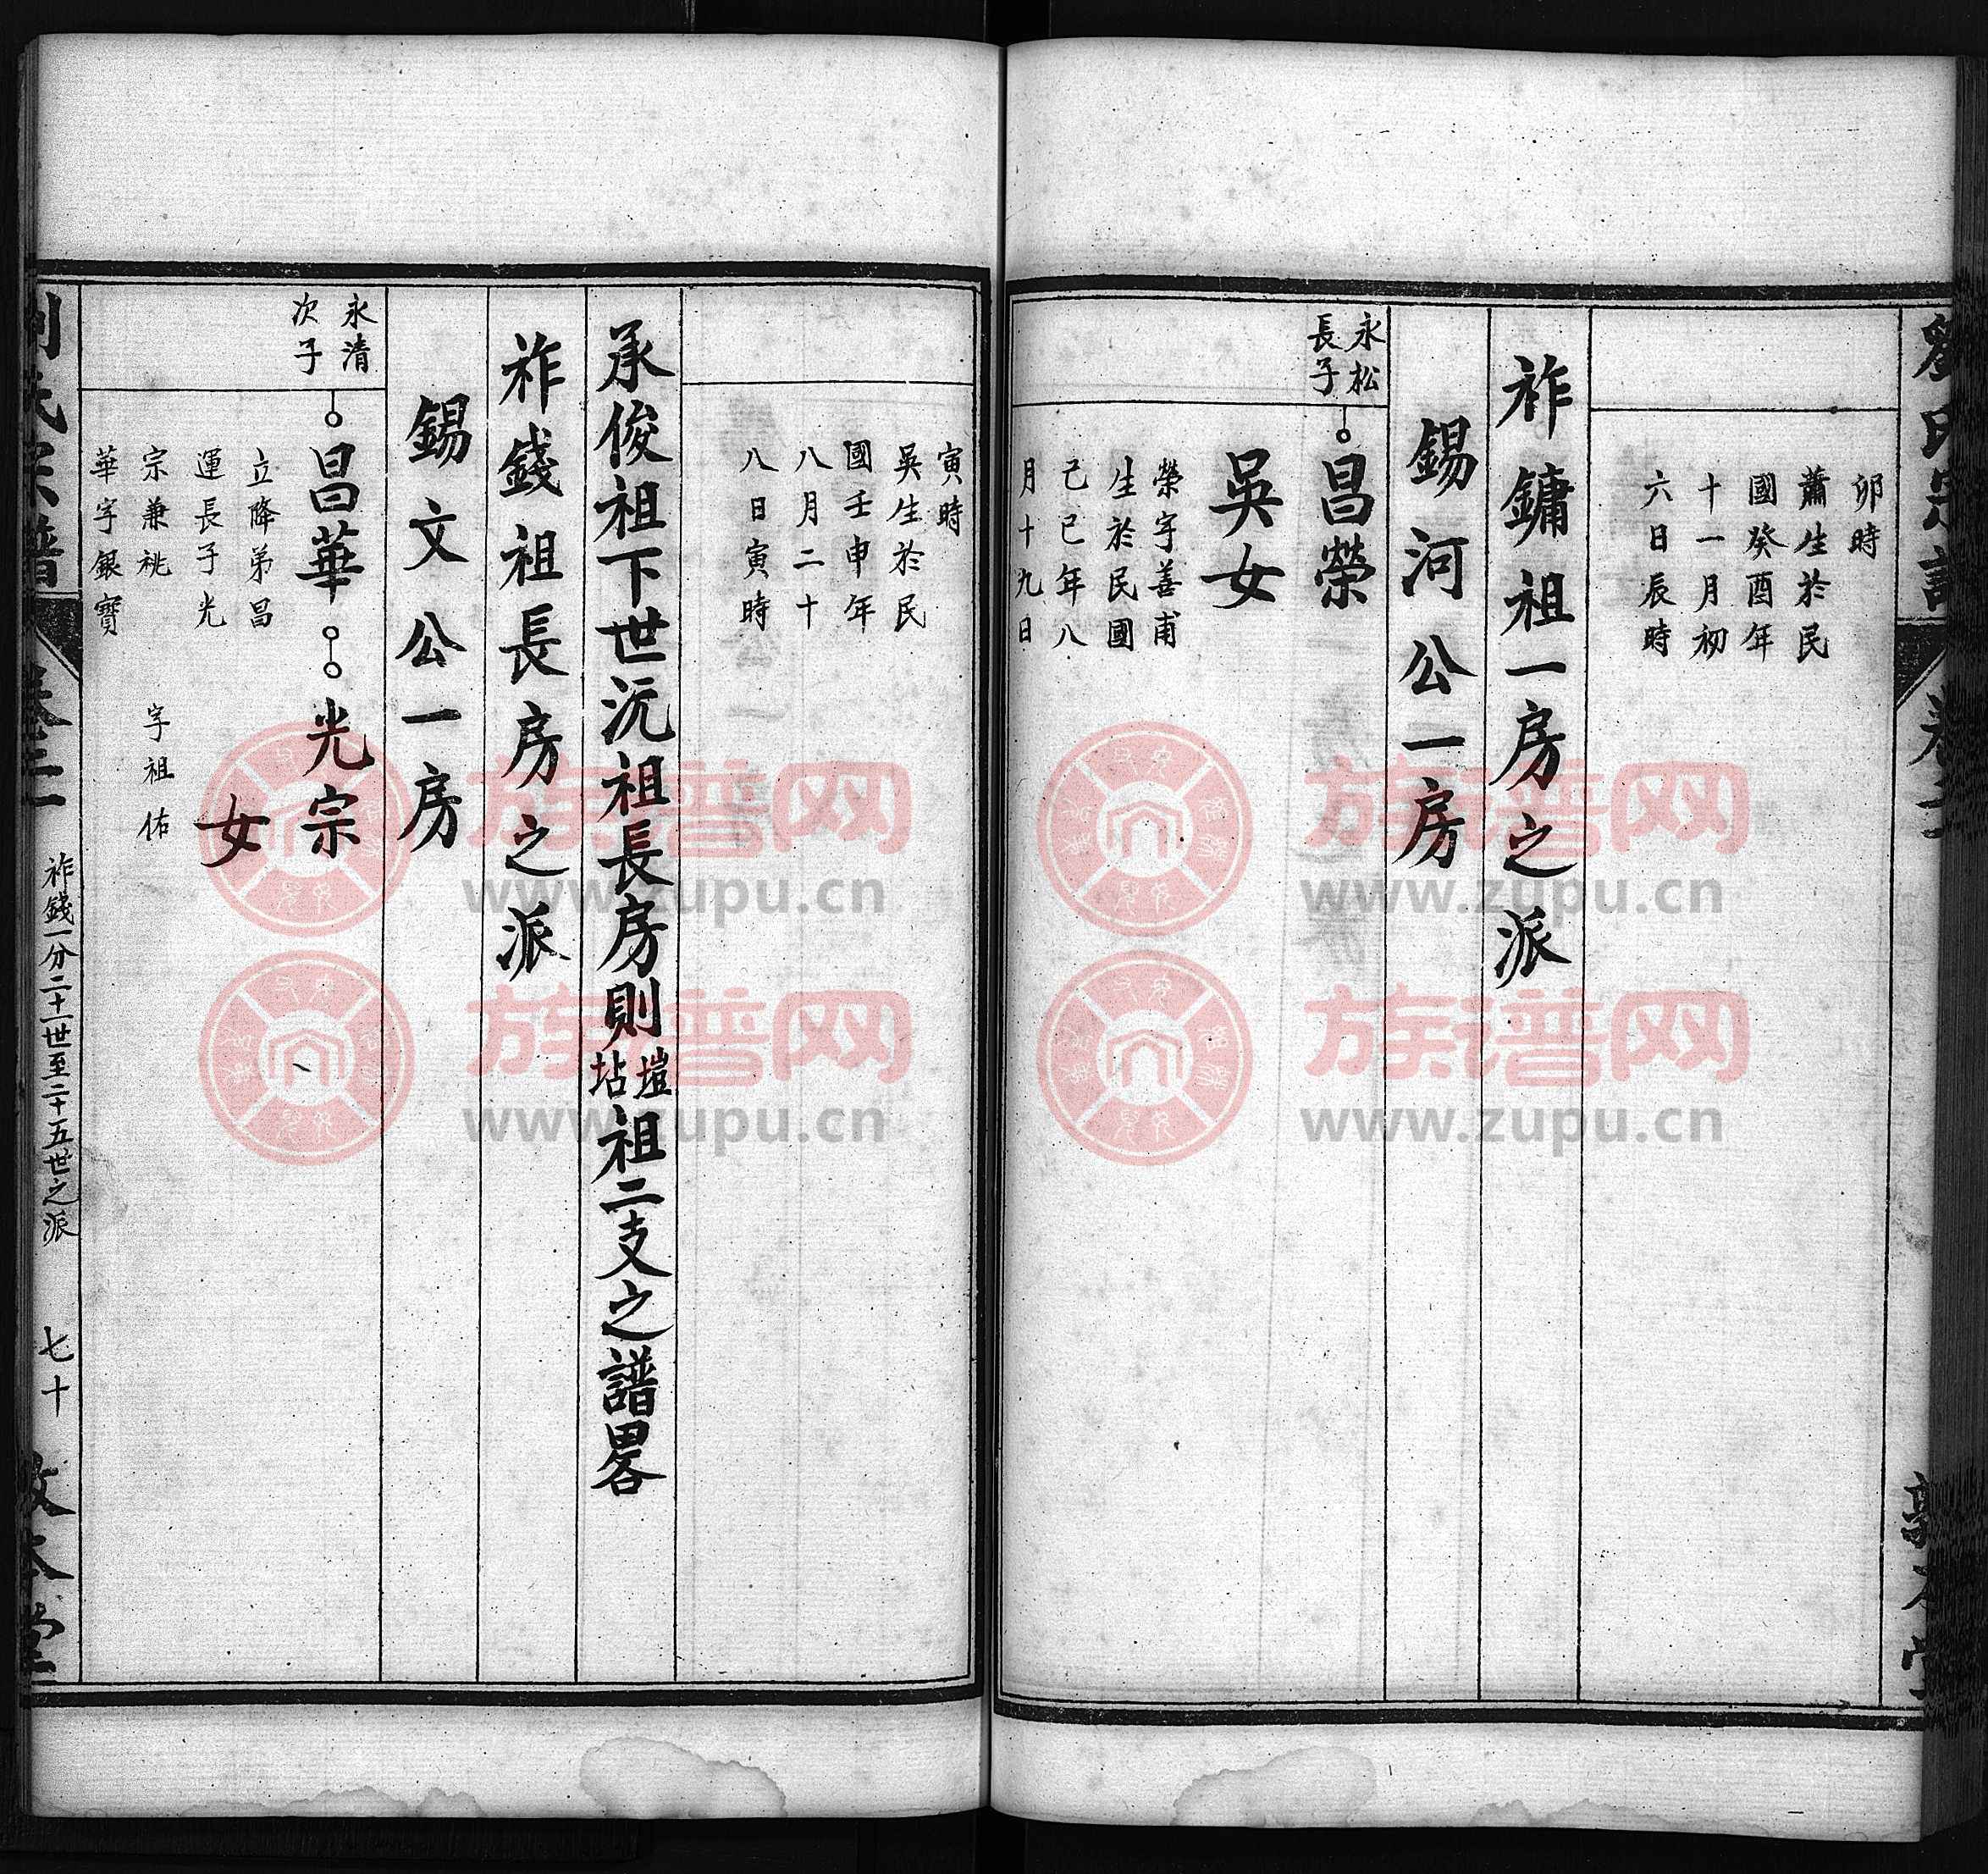 劉氏宗譜
卷二
敦本堂
卯時
蕭生於民
國癸酉年
十一月初
六日辰時
祚鏞祖一房之派
錫河公一房
永松
長子
昌榮
吳女
榮字善甫
生於民國
己巳年八
月十九日
寅時
吳生於民
國壬申年
八月二十
八日寅時
承俊祖下世沅祖長房則塏坫祖二支之譜畧
祚錢祖長房之派
錫文公一房
永清
次子
昌華
光宗
女
立降弟昌
運長子光
宗兼祧
字祖佑
華字銀寶
劉氏宗譜
祚錢一分二十一世至二十五世之派
七十
敦本堂
族谱网
www.zupu.cn
族谱网
www.zupu.cn
族谱网
www.zupu.cn
族谱网
www.zupu.cn